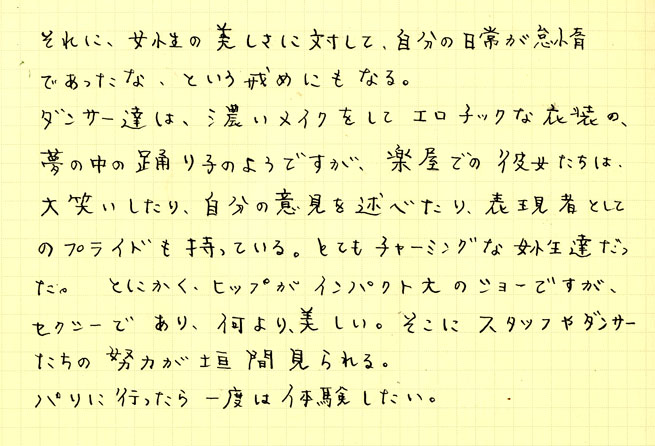 それに、女性の美しさに対して、自分の日常が怠惰
であったな、という戒めにもなる。
ダンサー達は、濃いメイクをしてエロチックな衣装の、
夢の中の踊り子のようですが、楽屋での彼女たちは、
大笑いしたり、自分の意見を述べたり、表現者として
のプライドも持っている。とてもチャーミングな女性達だっ
た。 とにかく、ヒップがインパクト大のショーですが、
セクシーであり、何より、美しい。そこにスタッフやダンサー
たちの努力が垣間見られる。
パリに行ったら一度は体験したい。